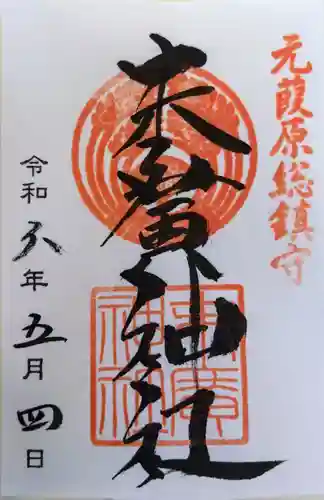 元葭原総鎮守
末廣神社
末廣
神社
令和年五月四日